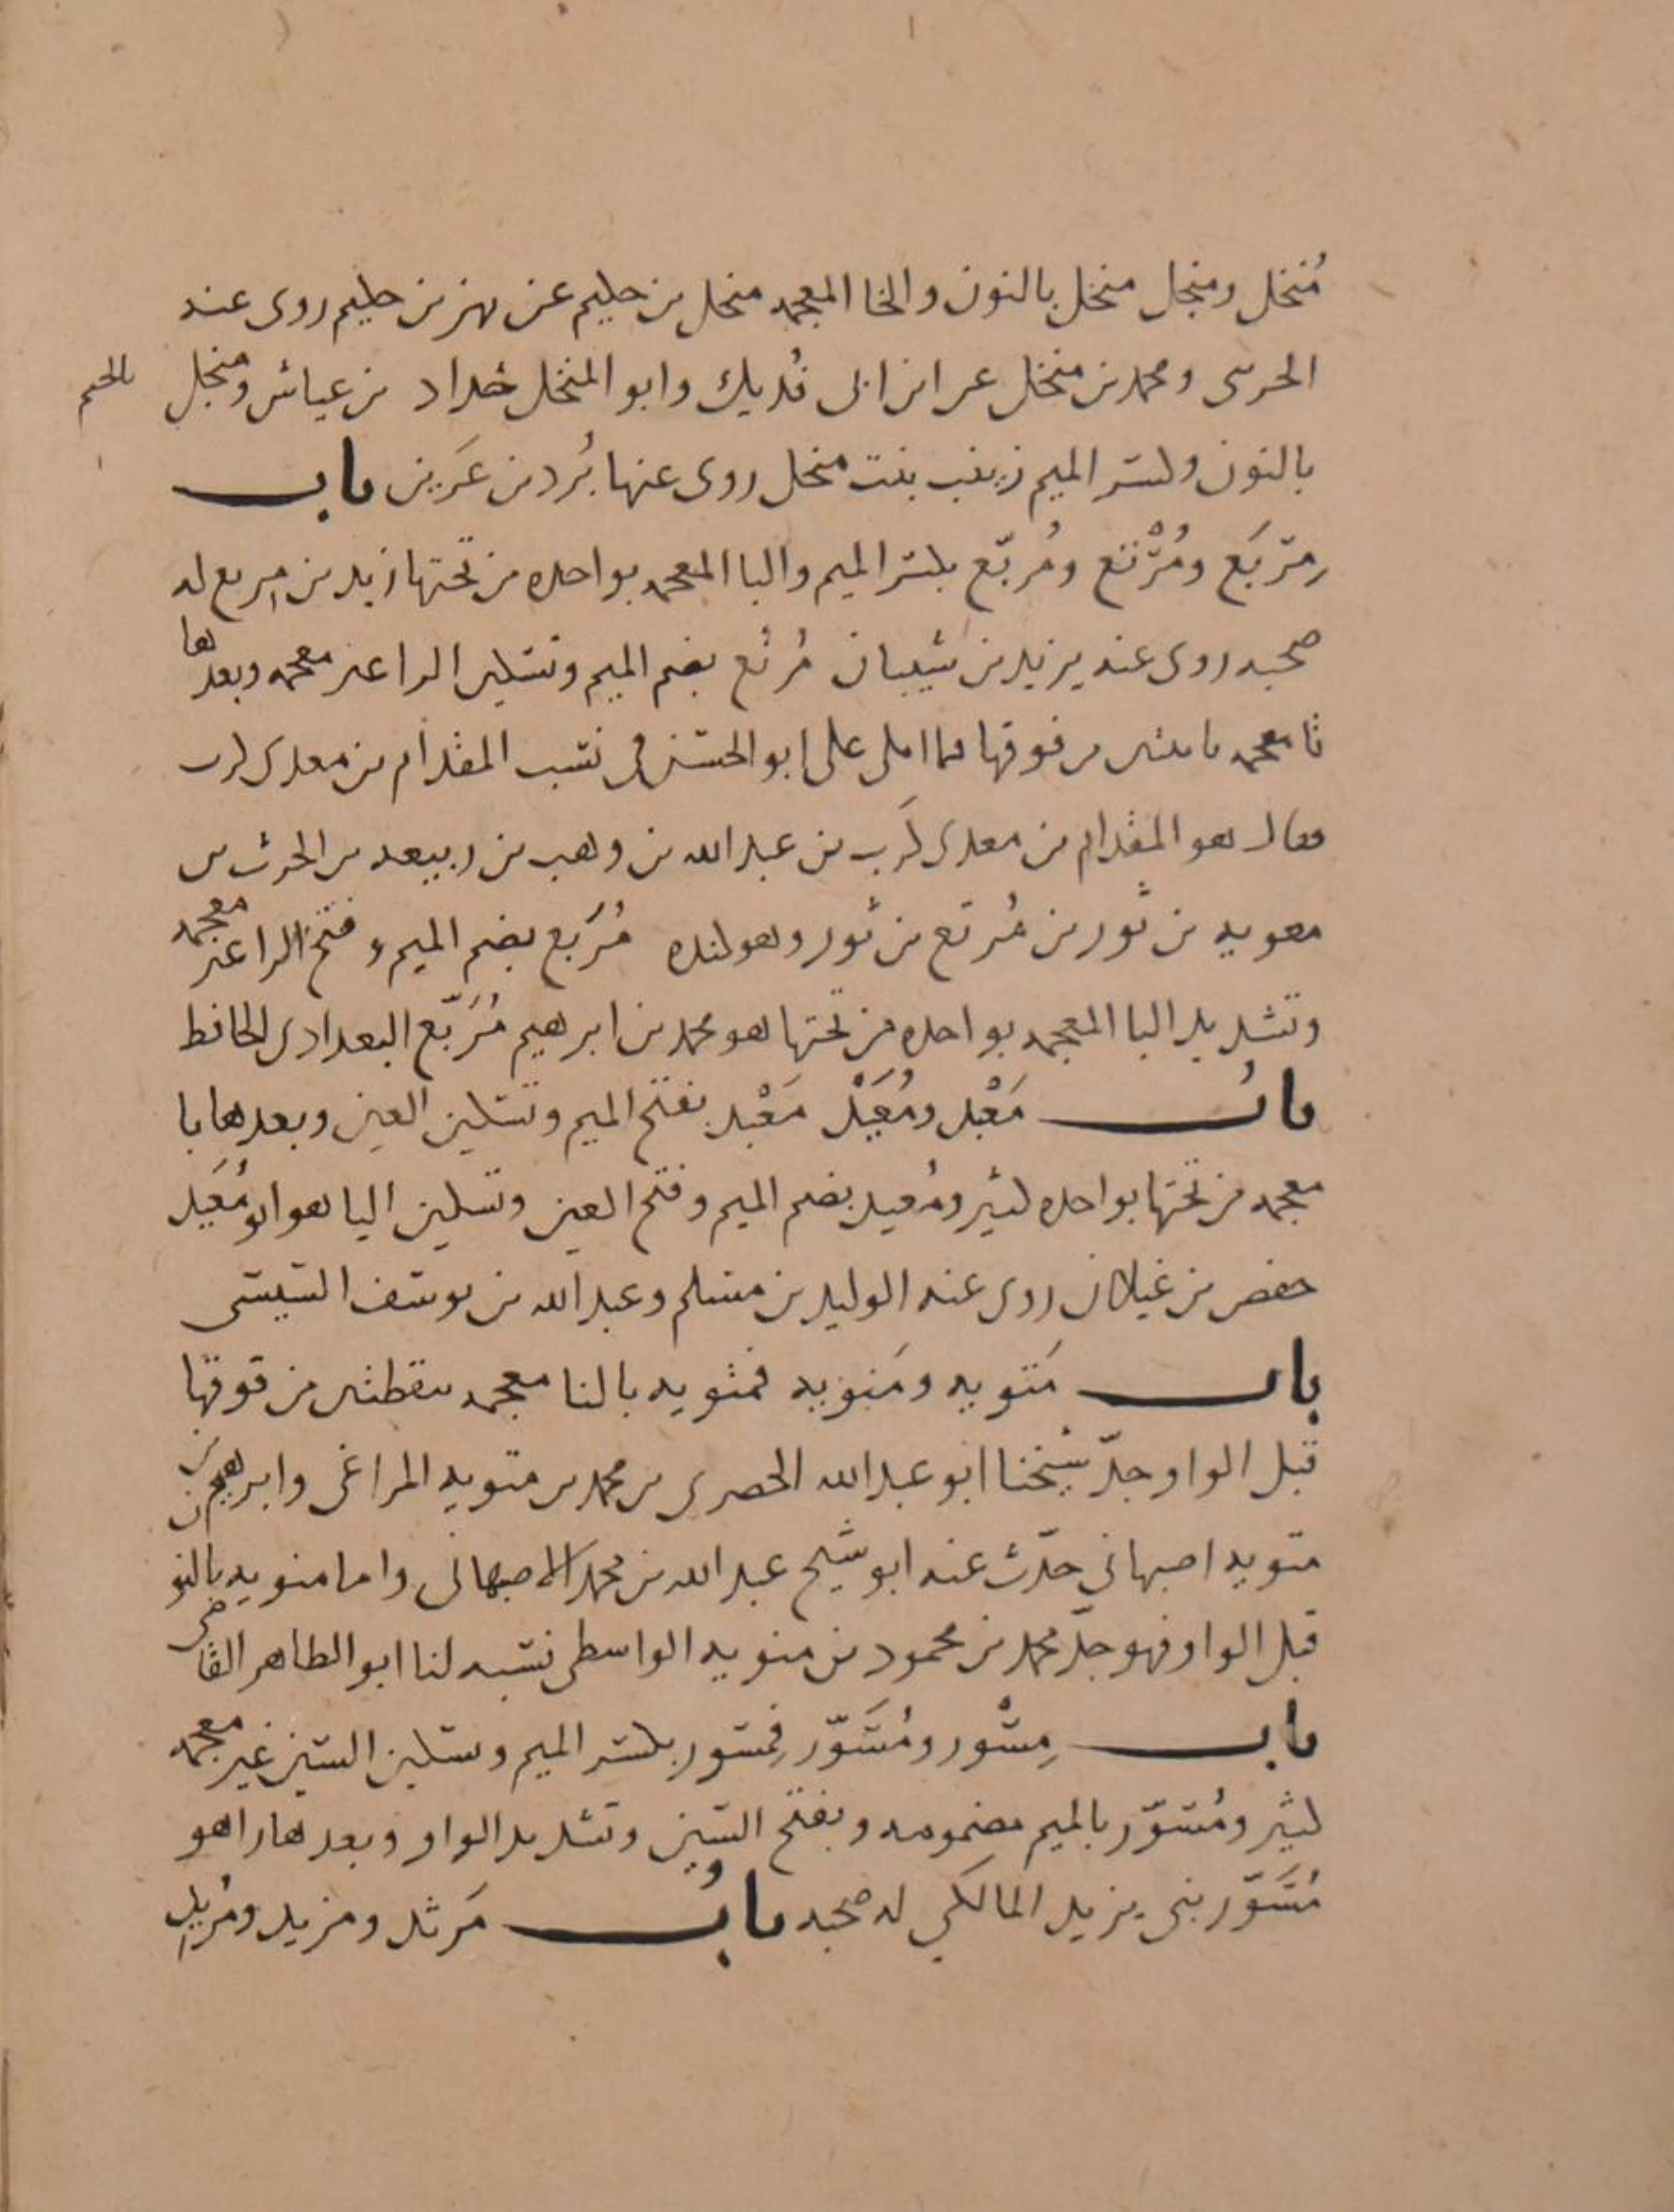 مُنخل ومنجل منخل بالنون والخا المعجمه منخل بن حكيم عن بهز بن حكيم روى عنه
الحرسى ومحمد بن منخل عن ابن ابى فُديك وابو المنخل خداد بن عياش ومنجل بالجيم
بالنون وكسر الميم زينب بنت منخل روى عنها بُرد بن عَرِين باب
مِرْبَع ومُرْتع ومُربّع بكسر الميم والبا المعجمه بواحده من تحتها زيد بن مِربع له
صحبه روى عنه يزيد بن شيبان مُرتع بضم الميم وتسكين الرا غير معجمه وبعدها
تا معجمه باثنتين من فوقها مما املى على ابو الحسن فى نسب المقدام بن معدى كرب
فقال هو المقدام بن معدى كَرِب بن عبد الله بن وهب بن ربيعه بن الحرث بن
معويه بن ثور بن مُرتع بن ثور وهو كنده مُرَبع بضم الميم وفتح الرا غير معجمه
وتشديد البا المعجمه بواحده من تحتها هو محمد بن ابرهيم مُرَبّع البغدادى الحافظ
بابُ مَعْبد ومُعَيْد مَعْبد بفتح الميم وتسكين العين وبعدها با
معجمه من تحتها بواحده كثير ومُعيد بضم الميم وفتح العين وتسكين اليا هو ابو مُعَيد
حفص بن غيلان روى عنه الوليد بن مسلم وعبد الله بن يوسف التنيسى
باب مَتويه ومَنويه فمتويه بالتا معجمه بنقطتين من فوقها
قبل الواو جدّ شيخنا ابو عبد الله الحصرى بن محمد بن متويه المراغى وابرهيم بن
متويه اصبهانى حدّث عنه ابو شيخ عبد الله بن محمد الاصبهانى واما منويه بالنو
قبل الواو فهو جدّ محمد بن محمود بن منويه الواسطى نسبه لنا ابو الطاهر القاضى
باب مِسْور ومُسَوّر فمِسور بكسر الميم وتسكين السين غير معجمه
كثير ومُسوّر بالميم مضمومه وبفتح السين وتشديد الواو وبعدها را هو
مُسَوّر بنى يزيد المالكي له صحبه بابُ مَرثد ومزيد ومُربد